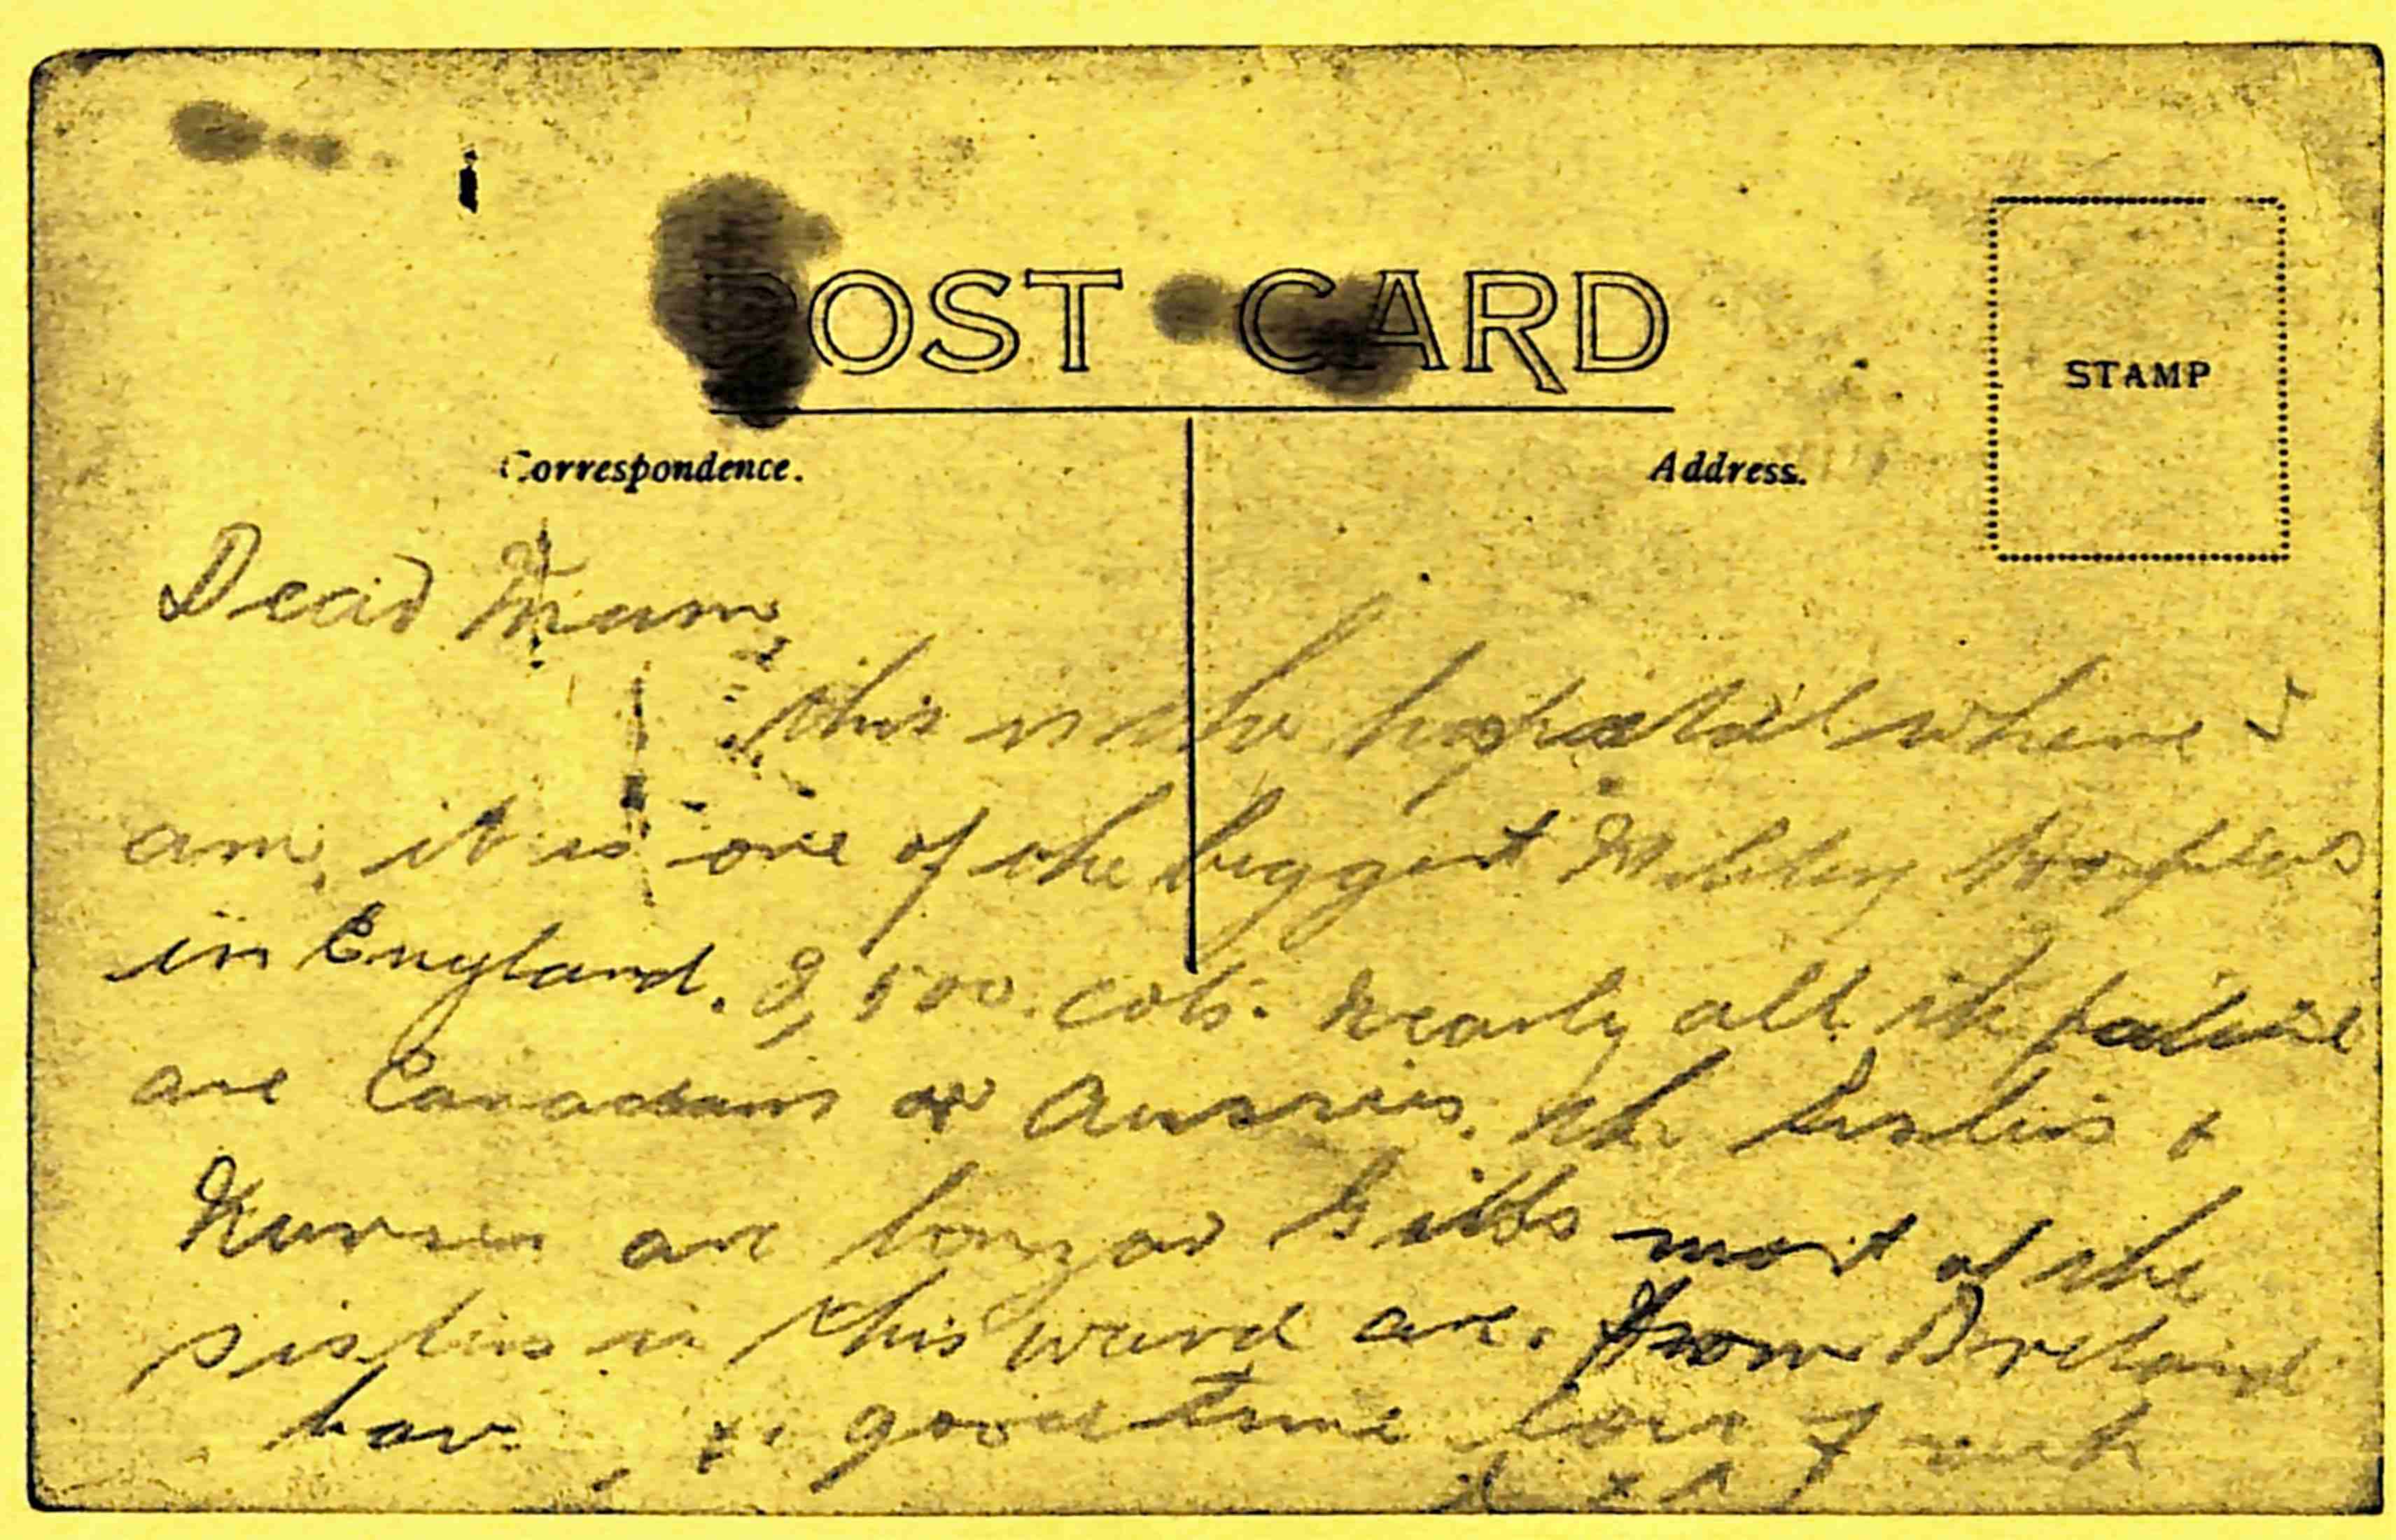 POST CARD
STAMP
Correspondence.
Address.
Dear Mum
this is the hospital where I
am, it is one of the biggest Military Hospitals
in England. 8,500. cots. Nearly all the
are Canadians or Aussies. the Sisters &
Nurses are most of the
sisters in this ward are. from
good time